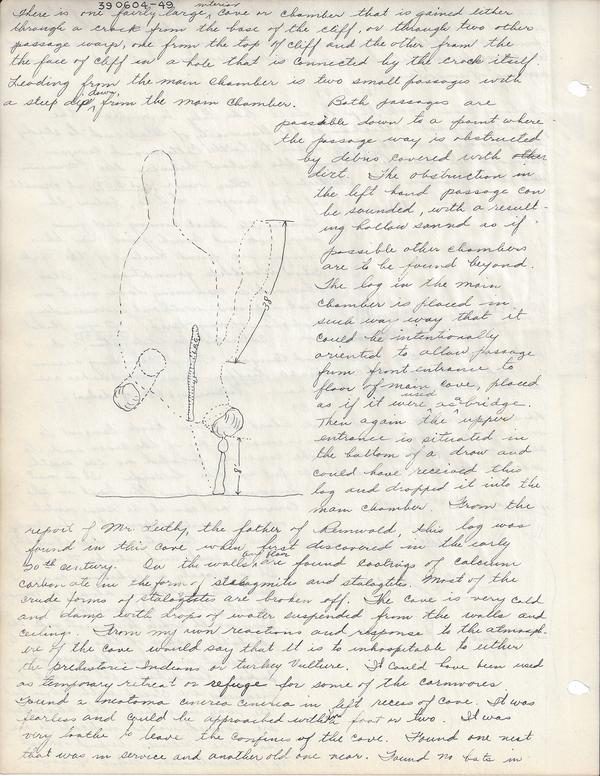 390604-49
There is one fairly large, interior cave or chamber that is gained either
through a crack from the base of the cliff, or through two other
passage warp, one from the top of cliff and the other from the
the face of cliff in a hole that is connected by the crock itself.
Leading from the main chamber is two small passages with
a steep dip down from the main chamber. Both passages are
possible down to a point where
the passage way is obstructed
by debris covered with other
dirt. The obstruction in
the left hand passage can
be sounded, with a result-
ing hollow sound as if
possible other chambers
are to be found beyond.
The log in the main
chamber is placed in
such war way that it
could be intentionally
oriented to allow passage
from front entrance to
floor of main cave, placed
as if it were used as a bridge.
Then again the upper
entrance is situated in
the bottom of a draw and
could have received this
log and dropped it into the
main chamber. From the
38'
8'
report of Mr. Leithy, the father of Reinwald, this log was
found in this cave when first discovered in the early
20th century. On the walls and floor are found coatings of calcium
carbonate in the form of stalagmites and stalagtites. Most of the
crude forms of stalagtites are broken off. The cave is very cold
and damp with drops of water suspended from the walls and
ceiling. From my own reactions and response to the atmosph-
ere of the cave would say that it is to inhospitable to either
the prehistoric Indians or turkey vulture. It could have been used
as temporary retreat or refuge for some of the carnivores
Found 2 neotoma cinerea cinerea in left recess of cave. It was
fearless and could be approached within a foot or two. It was
very loathe to leave the confines of the cave. Found one nest
that was in service and another old one near. Found no bats in